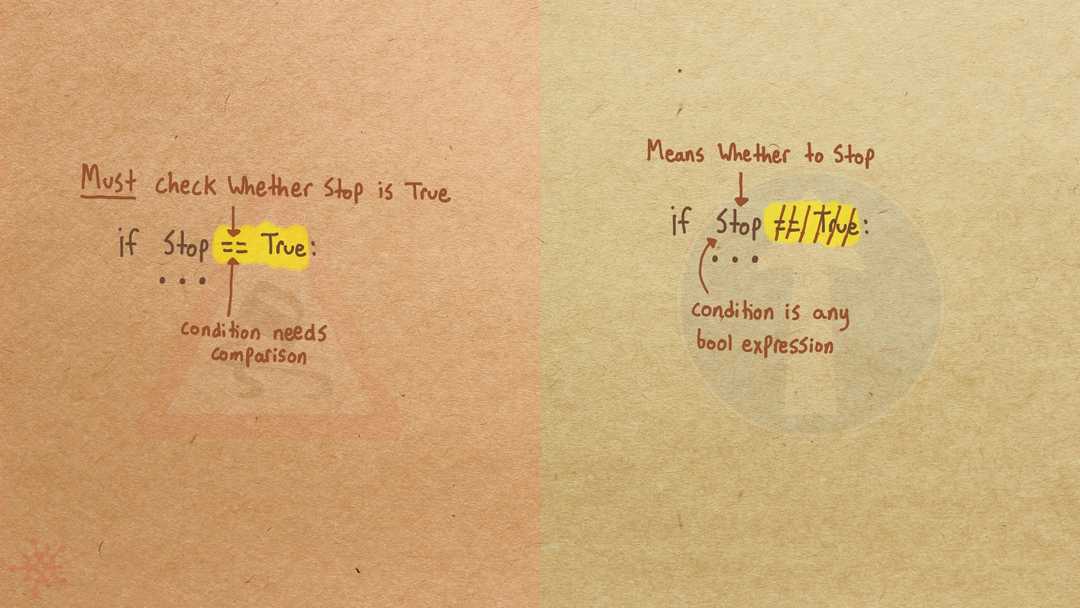 Must check whether Stop is True
if Stop == True:
...
condition needs
comparison
Means whether to Stop
if Stop == True:
...
condition is any
bool expression